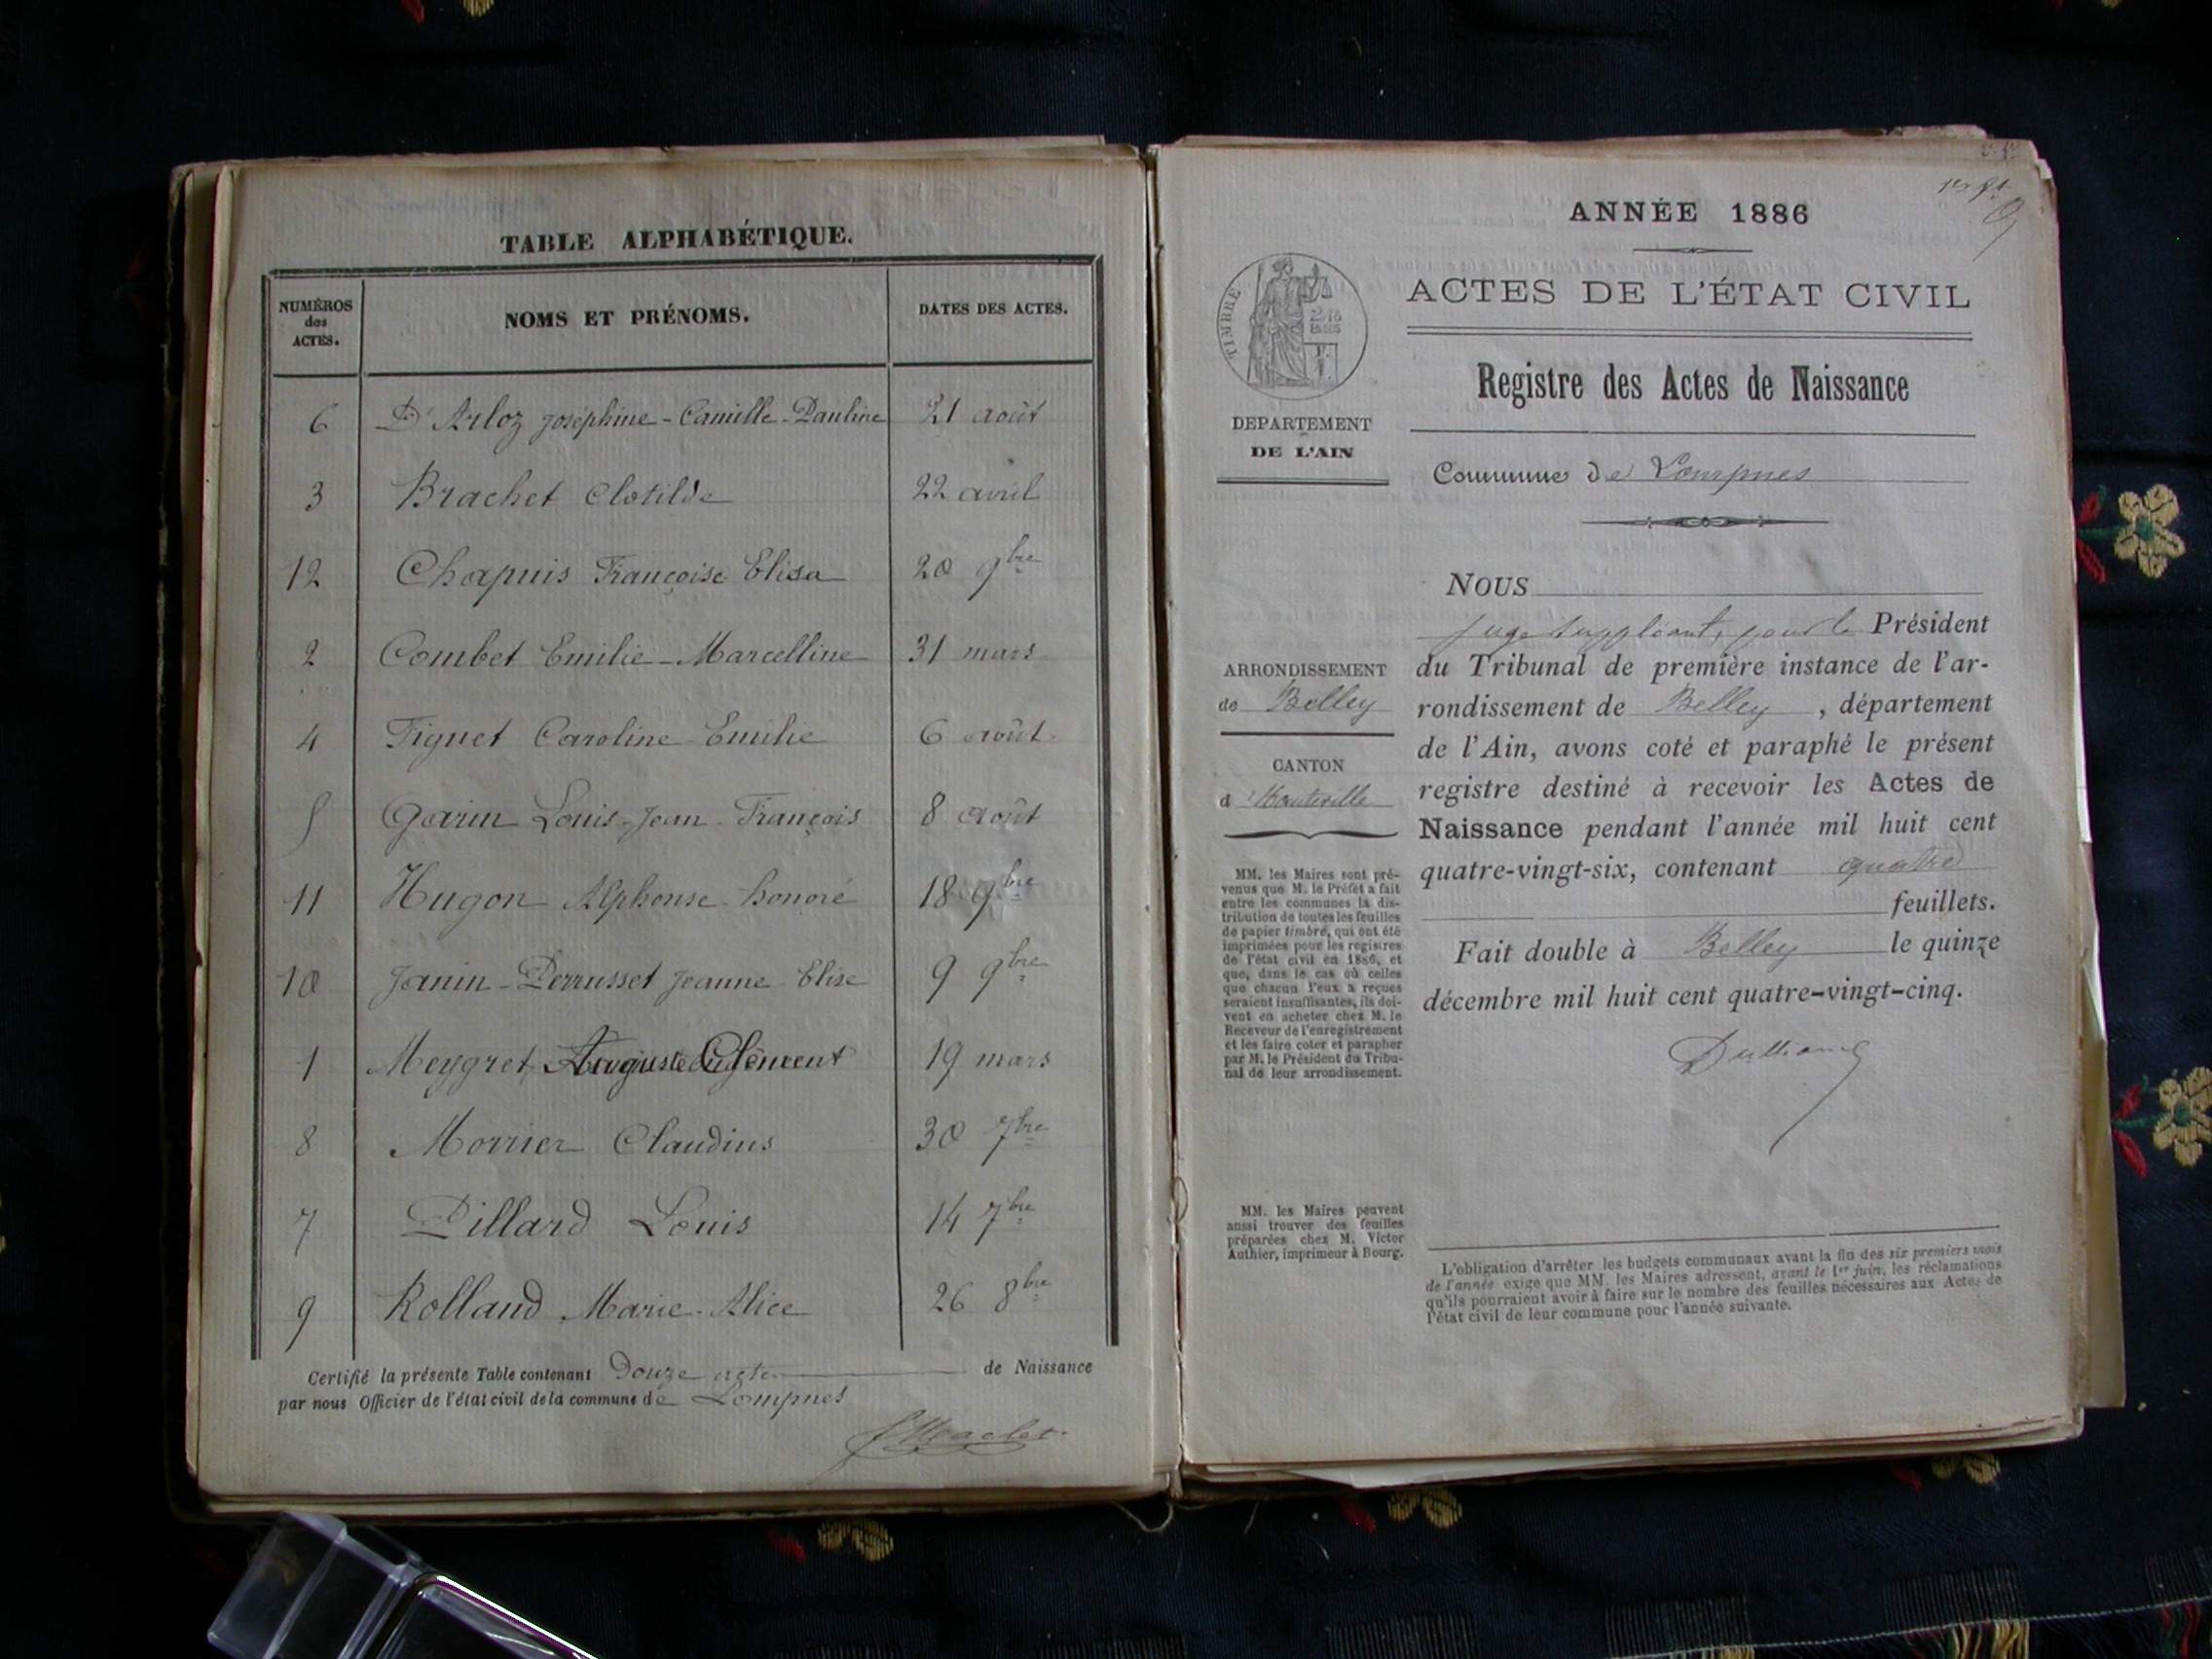 TABLE ALPHABÉTIQUE.
NUMÉROS des ACTES. NOMS ET PRÉNOMS. DATES DES ACTES.
6 D'Arloz Joséphine-Camille-Pauline 21 août
3 Brachet Clotilde 22 avril
12 Chapuis Françoise Elisa 20 9bre
2 Combet Emilie-Marcelline 31 mars
4 Figuet Caroline-Emilie 6 août
5 Garin Louis-Jean-François 8 août
11 Hugon Alphonse-honoré 18 9bre
10 Janin-Perrusset Jeanne Elise 9 9bre
1 Meygret Auguste Clément 19 mars
8 Morrier Claudius 30 7bre
7 Pillard Louis 14 7bre
9 Rolland Marie-Alice 26 8bre
Certifié la présente Table contenant Douze actes de Naissance
par nous Officier de l'état civil de la commune de Lompnes
ANNÉE 1886
ACTES DE L'ÉTAT CIVIL
TIMBRE
DEPARTEMENT
DE L'AIN
Registre des Actes de Naissance
Commune de Lompnes
ARRONDISSEMENT
de Belley
CANTON
d'Hauteville
MM. les Maires sont pré-
venus que M. le Préfet a fait
entre les communes la dis-
tribution de toutes les feuilles
de papier timbré, qui ont été
imprimées pour les registres
de l'état civil en 1886, et
que, dans le cas où celles
que chacun d'eux a reçues
seraient insuffisantes, ils doi-
vent en acheter chez M. le
Receveur de l'enregistrement
et les faire coter et parapher
par M. le Président du Tribu-
nal de leur arrondissement.
MM. les Maires peuvent
aussi trouver des feuilles
préparées chez M. Victor
Authier, imprimeur à Bourg.
NOUS
juge suppléant, pour le Président
du Tribunal de première instance de l'ar-
rondissement de Belley, département
de l'Ain, avons coté et paraphé le présent
registre destiné à recevoir les Actes de
Naissance pendant l'année mil huit cent
quatre-vingt-six, contenant quatre
feuillets.
Fait double à Belley le quinze
décembre mil huit cent quatre-vingt-cinq.
L'obligation d'arrêter les budgets communaux avant la fin des six premiers mois
de l'année exige que MM. les Maires adressent, avant le 1er juin, les réclamations
qu'ils pourraient avoir à faire sur le nombre des feuilles nécessaires aux Actes de
l'état civil de leur commune pour l'année suivante.